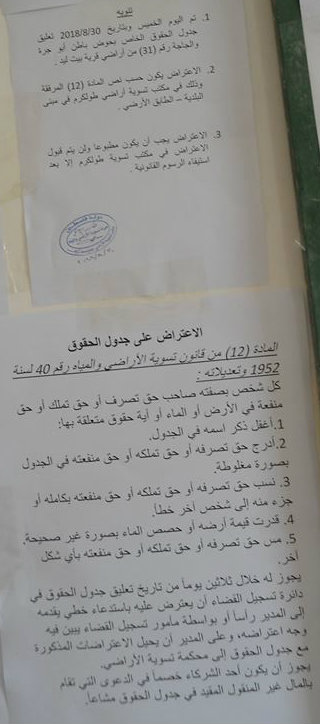 للتنويه
1. تم اليوم الخميس وبتاريخ 2018/8/30 تعليق
جدول الحقوق الخاص بحوض باطن أبو جرة
والجاجة رقم (31) من أراضي قرية بيت ليد .
2. الاعتراض يكون حسب نص المادة (12) المرفقة
وذلك في مكتب تسوية أراضي طولكرم في مبنى
البلدية – الطابق الأرضي .
3. الاعتراض يجب أن يكون مطبوعا ولن يتم قبول
الاعتراض في مكتب تسوية طولكرم إلا بعد
استيفاء الرسوم القانونية .
الاعتراض على جدول الحقوق
المادة (12) من قانون تسوية الأراضي والمياه رقم 40 لسنة
1952 وتعديلاته :
كل شخص بصفته صاحب حق تصرف أو حق تملك أو حق
منفعة في الأرض أو الماء أو أية حقوق متعلقة بها:
1.أغفل ذكر اسمه في الجدول.
2.أدرج حق تصرفه أو حق تملكه أو حق منفعته في الجدول
بصورة مغلوطة.
3. نسب حق تصرفه أو حق تملكه أو حق منفعته بكامله أو
جزء منه إلى شخص آخر خطأ.
4. قدرت قيمة أرضه أو حصص الماء بصورة غير صحيحة.
5. مس حق تصرفه أو حق تملكه أو حق منفعته بأي شكل
آخر.
يجوز له خلال ثلاثين يوما من تاريخ تعليق جدول الحقوق في
دائرة تسجيل القضاء أن يعترض عليه باستدعاء خطي يقدمه
إلى المدير رأسا أو بواسطة مأمور تسجيل القضاء يبين فيه
وجه اعتراضه، وعلى المدير أن يحيل الاعتراضات المذكورة
مع جدول الحقوق إلى محكمة تسوية الأراضي.
يجوز أن يكون أحد الشركاء خصما في الدعوى التي تقام
بالمال غير المنقول المقيد في جدول الحقوق مشاعا.